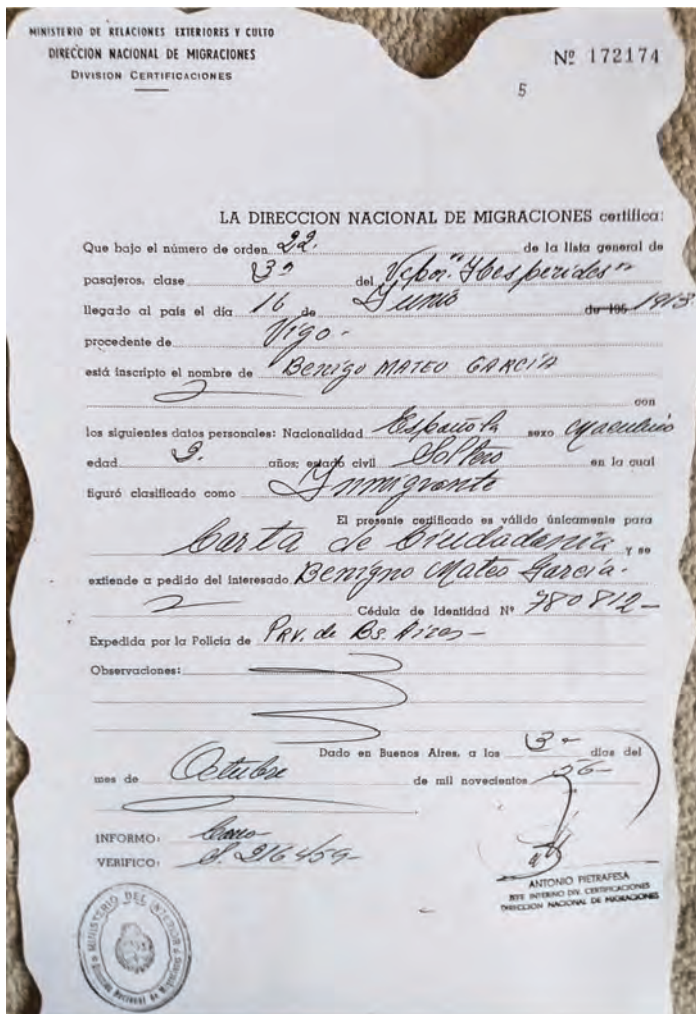 MINISTERIO DE RELACIONES EXTERIORES Y CULTO
DIRECCION NACIONAL DE MIGRACIONES
DIVISION CERTIFICACIONES
Nº 172174
5
LA DIRECCION NACIONAL DE MIGRACIONES certifica:
Que bajo el número de orden 22. de la lista general de
pasajeros, clase 3ª del Vapor "Hesperides"
llegado al país el día 16 de Junio de 195 1913
procedente de Vigo -
está inscripto el nombre de Benigo MATEO GARCÍA
con
los siguientes datos personales: Nacionalidad Española sexo Masculino
edad años; estado civil Soltero en la cual
figuró clasificado como Inmigrante
El presente certificado es válido únicamente para
Carta de Ciudadanía y se
extiende a pedido del interesado Benigno Mateo García.
Cédula de Identidad Nº 780812-
Expedida por la Policía de PRV. de Bs. Aires -
Observaciones:
Dado en Buenos Aires, a los días del
mes de Octubre de mil novecientos 56-
INFORMO:
VERIFICO: 216459-
ANTONIO PIETRAFESA
JEFE INTERINO DIV. CERTIFICACIONES
DIRECCION NACIONAL DE MIGRACIONES
MINISTERIO DEL INTERIOR
Nacional de